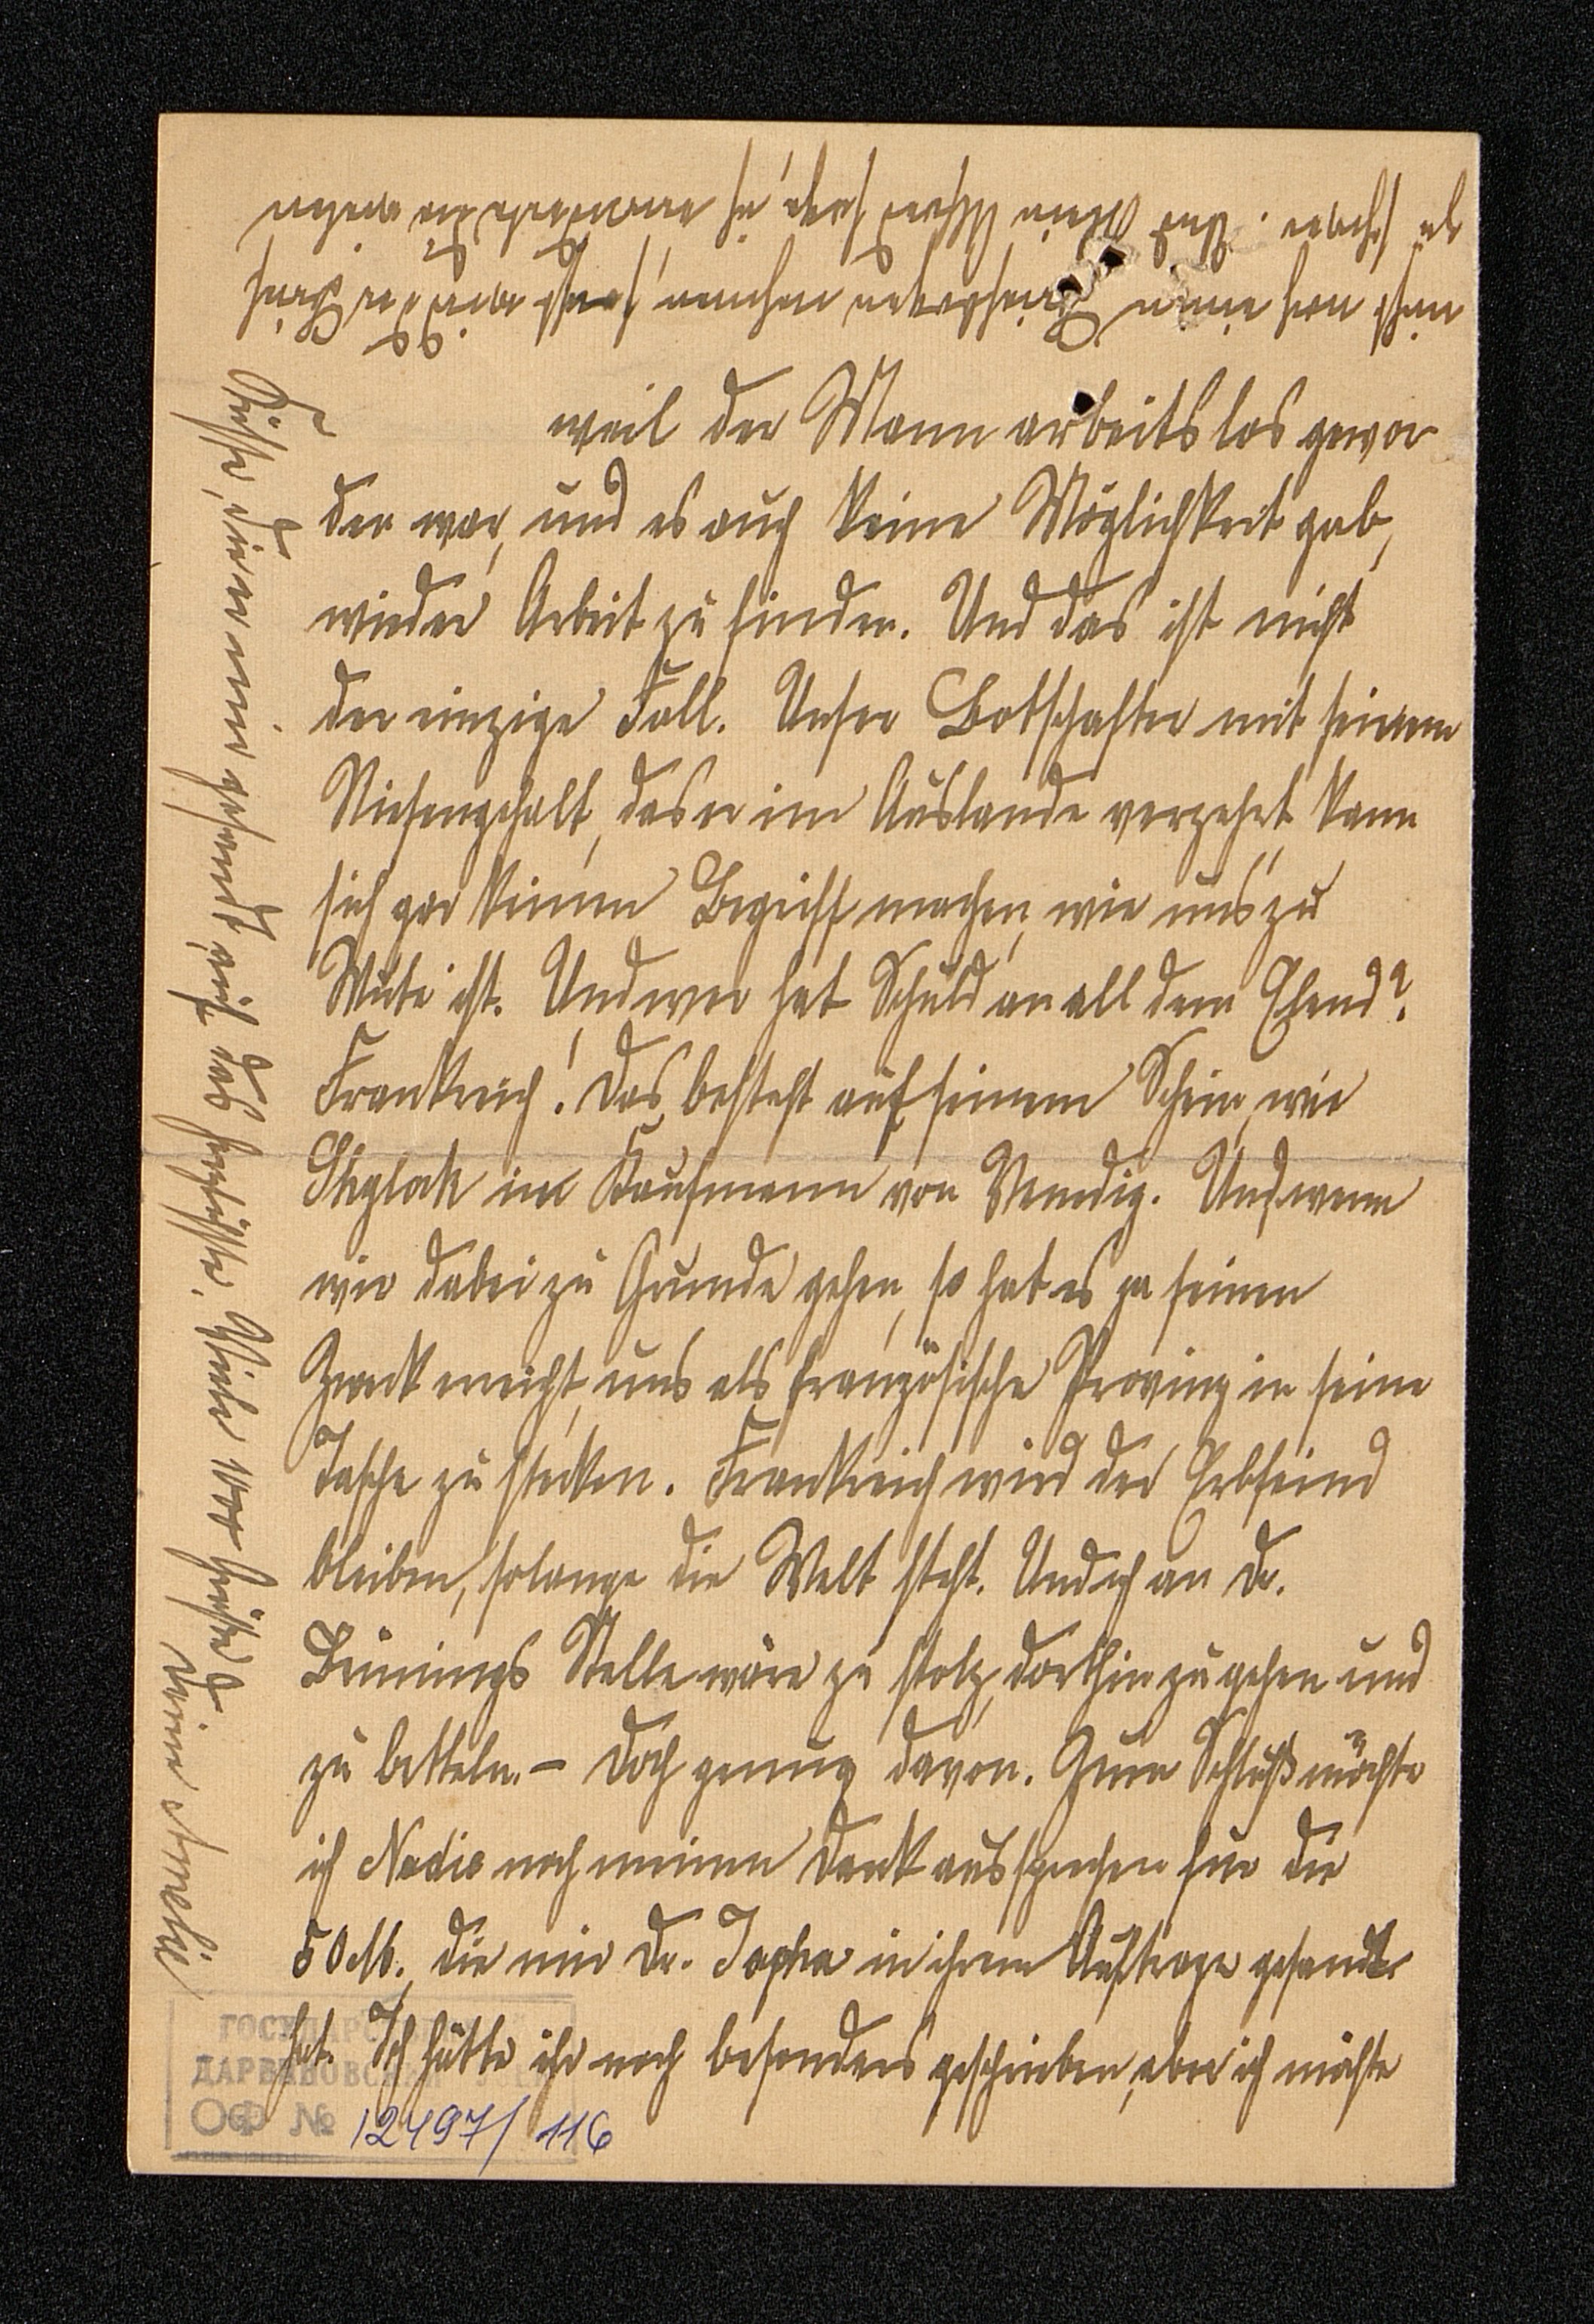 weil der Mann arbeitslos gewor
den war, und es auch keine Möglichkeit gab,
wieder Arbeit zu finden. Und das ist nicht
der einzige Fall. Unser Botschafter mit seinem
Riesengehalt, das er im Auslande verzehrt, kann
sich gar keinen Begriff machen, wie uns zu
Mute ist. Und wer hat Schuld an all dem Elend?
Frankreich! Das besteht auf seinem Schein, wie
Shylock im Kaufmann von Venedig. Und wenn
wir dabei zu Grunde gehen, so hat es ja seinen
Zweck erreicht, uns als französische Provinz in seine
Tasche zu stecken. Frankreich wird der Erbfeind
bleiben, solange die Welt steht. Und ich an Dr.
Brünings Stelle wäre zu stolz, dorthin zu gehen und
zu betteln. – Doch genug davon. Zum Schluß möchte
ich Nadia noch meinen Dank aussprechen für die
50 M., die mir Dr. Japha in ihrem Auftrage gesandt
hat. Ich hätte ihr noch besonders geschrieben, aber ich möchte
nicht noch einen Briefbogen nehmen, sonst wird der Brief
zu schwer. Und Mein
Grüße Deinen
gesandt, auf das herzlichste.
Deine Amelie
ГОСУДАРСТВ
ДАРВИНОВСКИЙ
ОФ № 12497/116